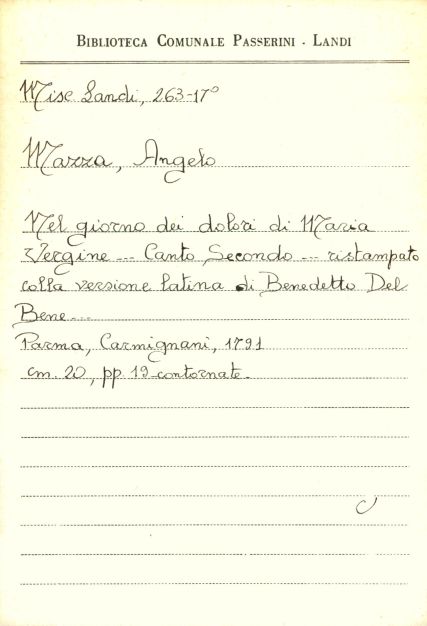 BIBLIOTECA COMUNALE PASSERINI - LANDI
Misc Landi, 263-17°
Mazza, Angelo
Nel giorno dei dolori di Maria
Vergine --- Canto Secondo --- ristampato
colla versione latina di Benedetto Del
Bene ---
Parma, Carmignani, 1791
cm. 20, pp. 19 contornate.